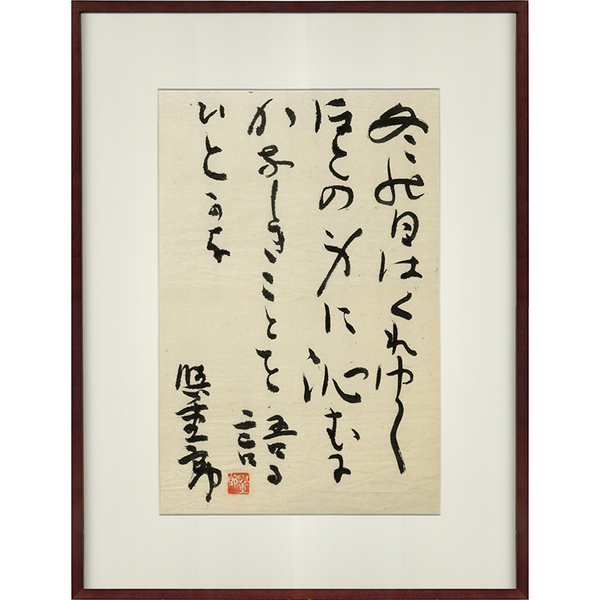 冬の日はくれゆく
ほとの身に沁むに
かなしきことを語る
ひとかな
與重郎